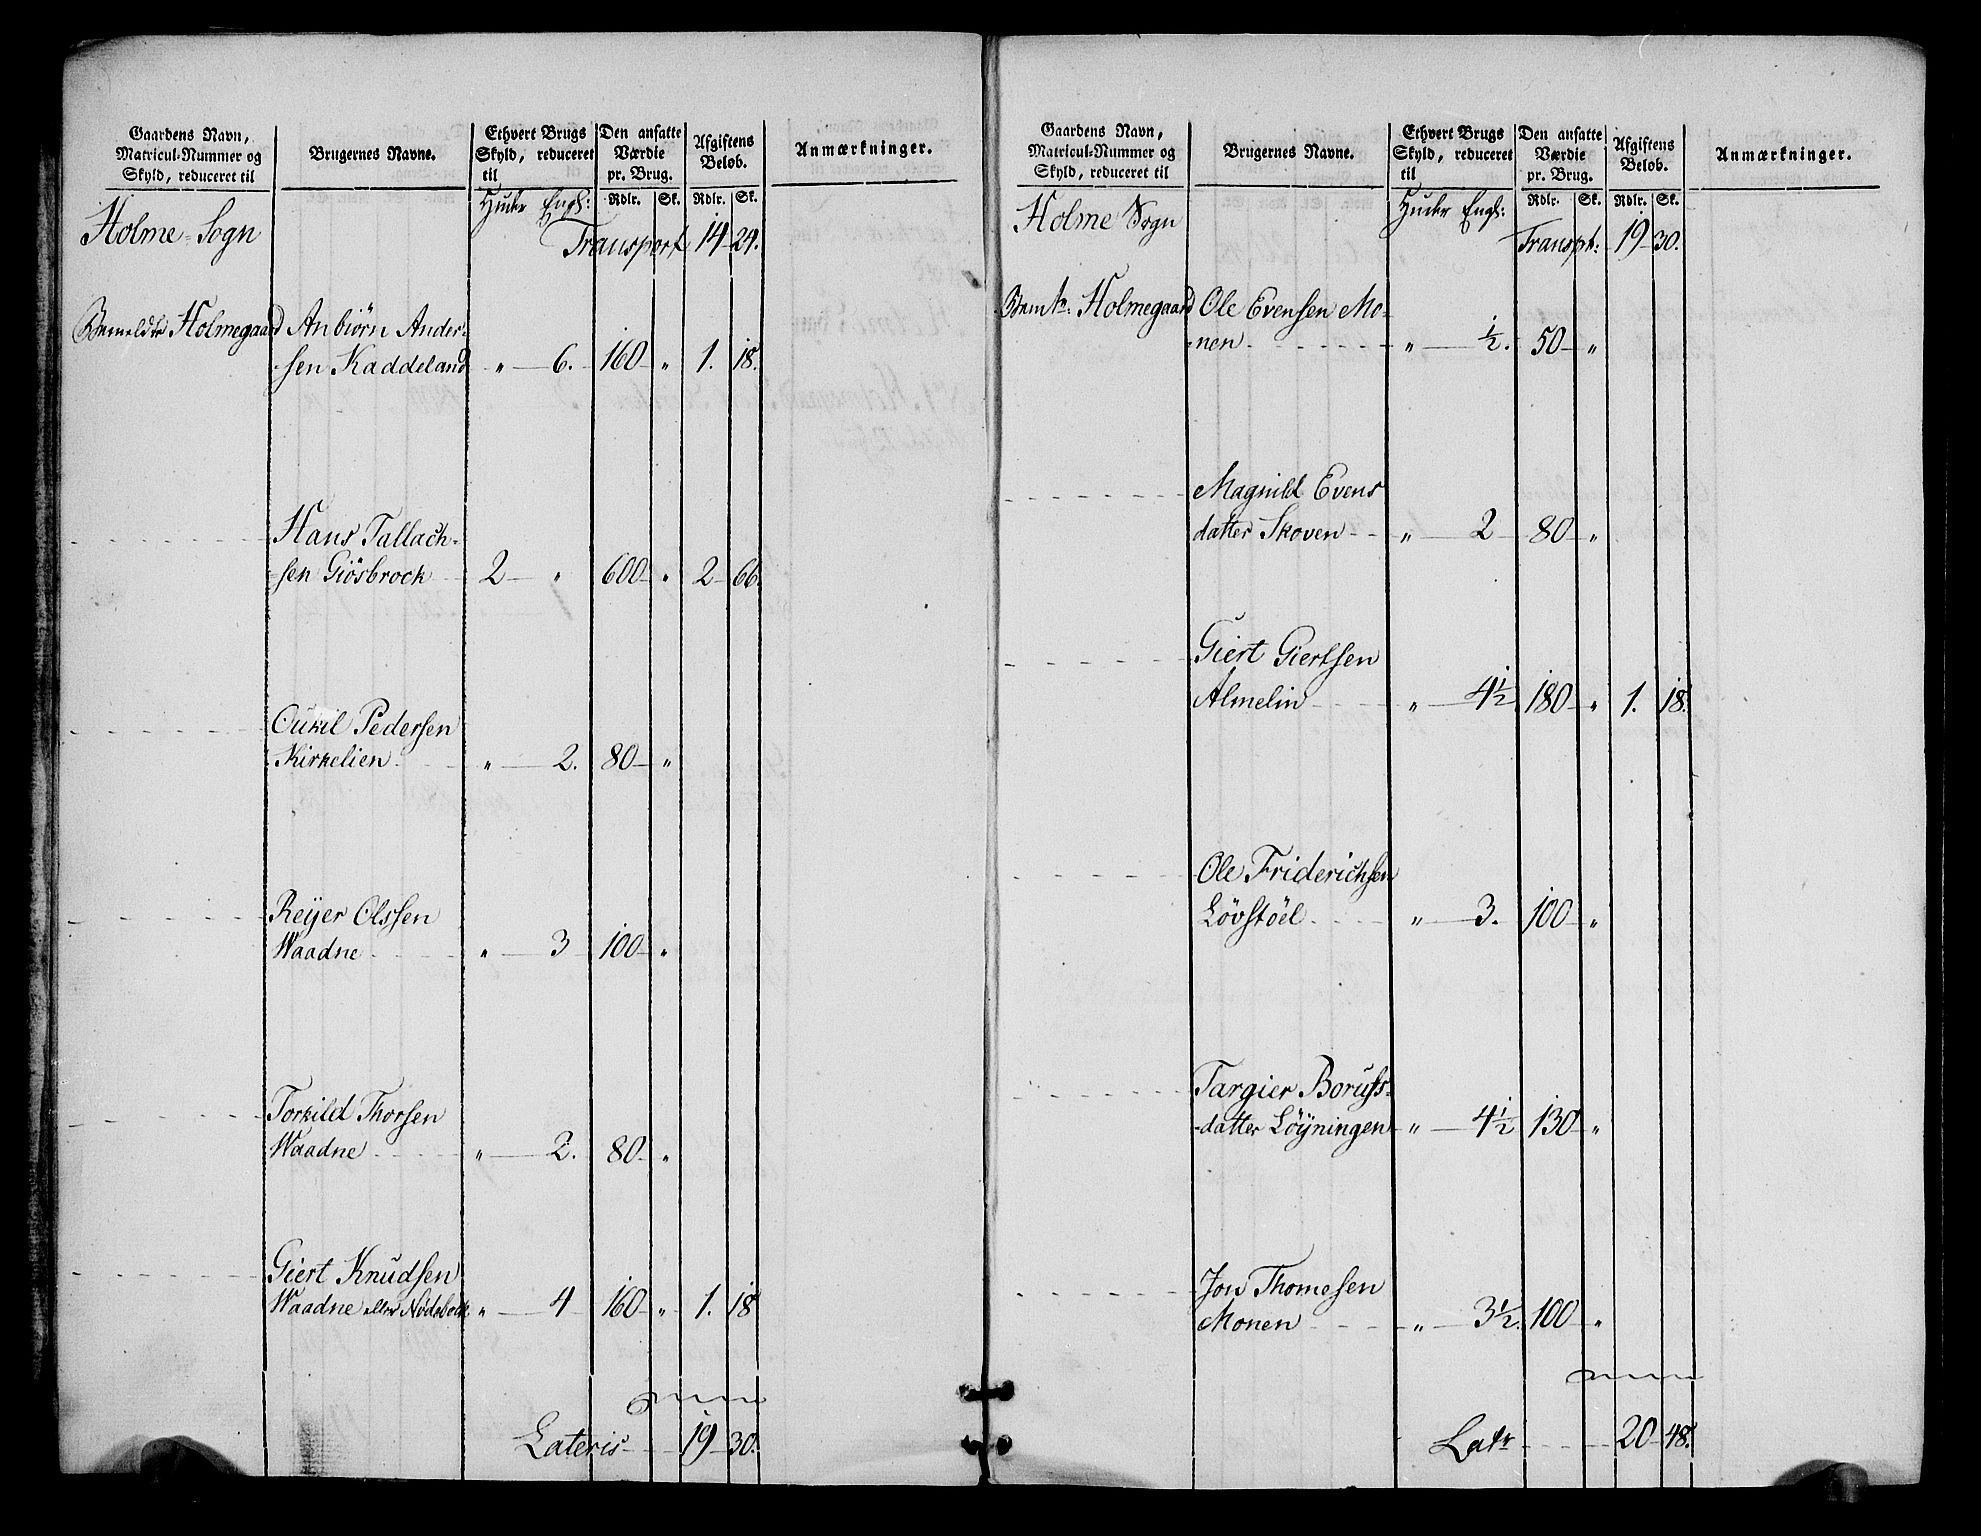 Gaardens Navn, Matricul-Nummer og Skyld, reduceret til | Brugernes Navne. | Ethvert Brugs Skyld, reduceret til | Den ansatte Værdie pr. Brug. | Afgiftens Belob. | Anmærkninger.
Huder Engl: | Rdlr. | Sk. | Rdlr. | Sk.
Holme-Sogn Transport 14 24.
Bemeldte Holmegaard Anbiörn Ander-
sen Kaddeland " 6. 160 " 1. 18.
Hans Tallach-
sen Giösbrock 2 " 600 " 2 66.
Oukil Pedersen
Kirkelien " 2. 80 "
Reijer Olssen
Waadne " 3 100 "
Torkild Thorsen
Waadne " 2. 80 "
Giert Knudsen
Waadne eller Nödebock " 4 160 " 1. 18
Lateris 19 30.
Gaardens Navn, Matricul-Nummer og Skyld, reduceret til | Brugernes Navne. | Ethvert Brugs Skyld, reduceret til | Den ansatte Værdie pr. Brug. | Afgiftens Belob. | Anmærkninger.
Huder Engl: | Rdlr. | Sk. | Rdlr. | Sk.
Holme Sogn Transpt: 19 30.
Bemte. Holmegaard Ole Evensen Mo-
nen " ½. 50 "
Magnild Evens
datter Skoven " 2 80 "
Giert Giertsen
Almelin " 4½ 180 " 1. 18.
Ole Friderichsen
Lövstöel " 3. 100 "
Targier Boruss-
datter Löyningen " 4½ 130 "
Jon Thomesen
Monen " 3½. 100 "
Latr 20 48.